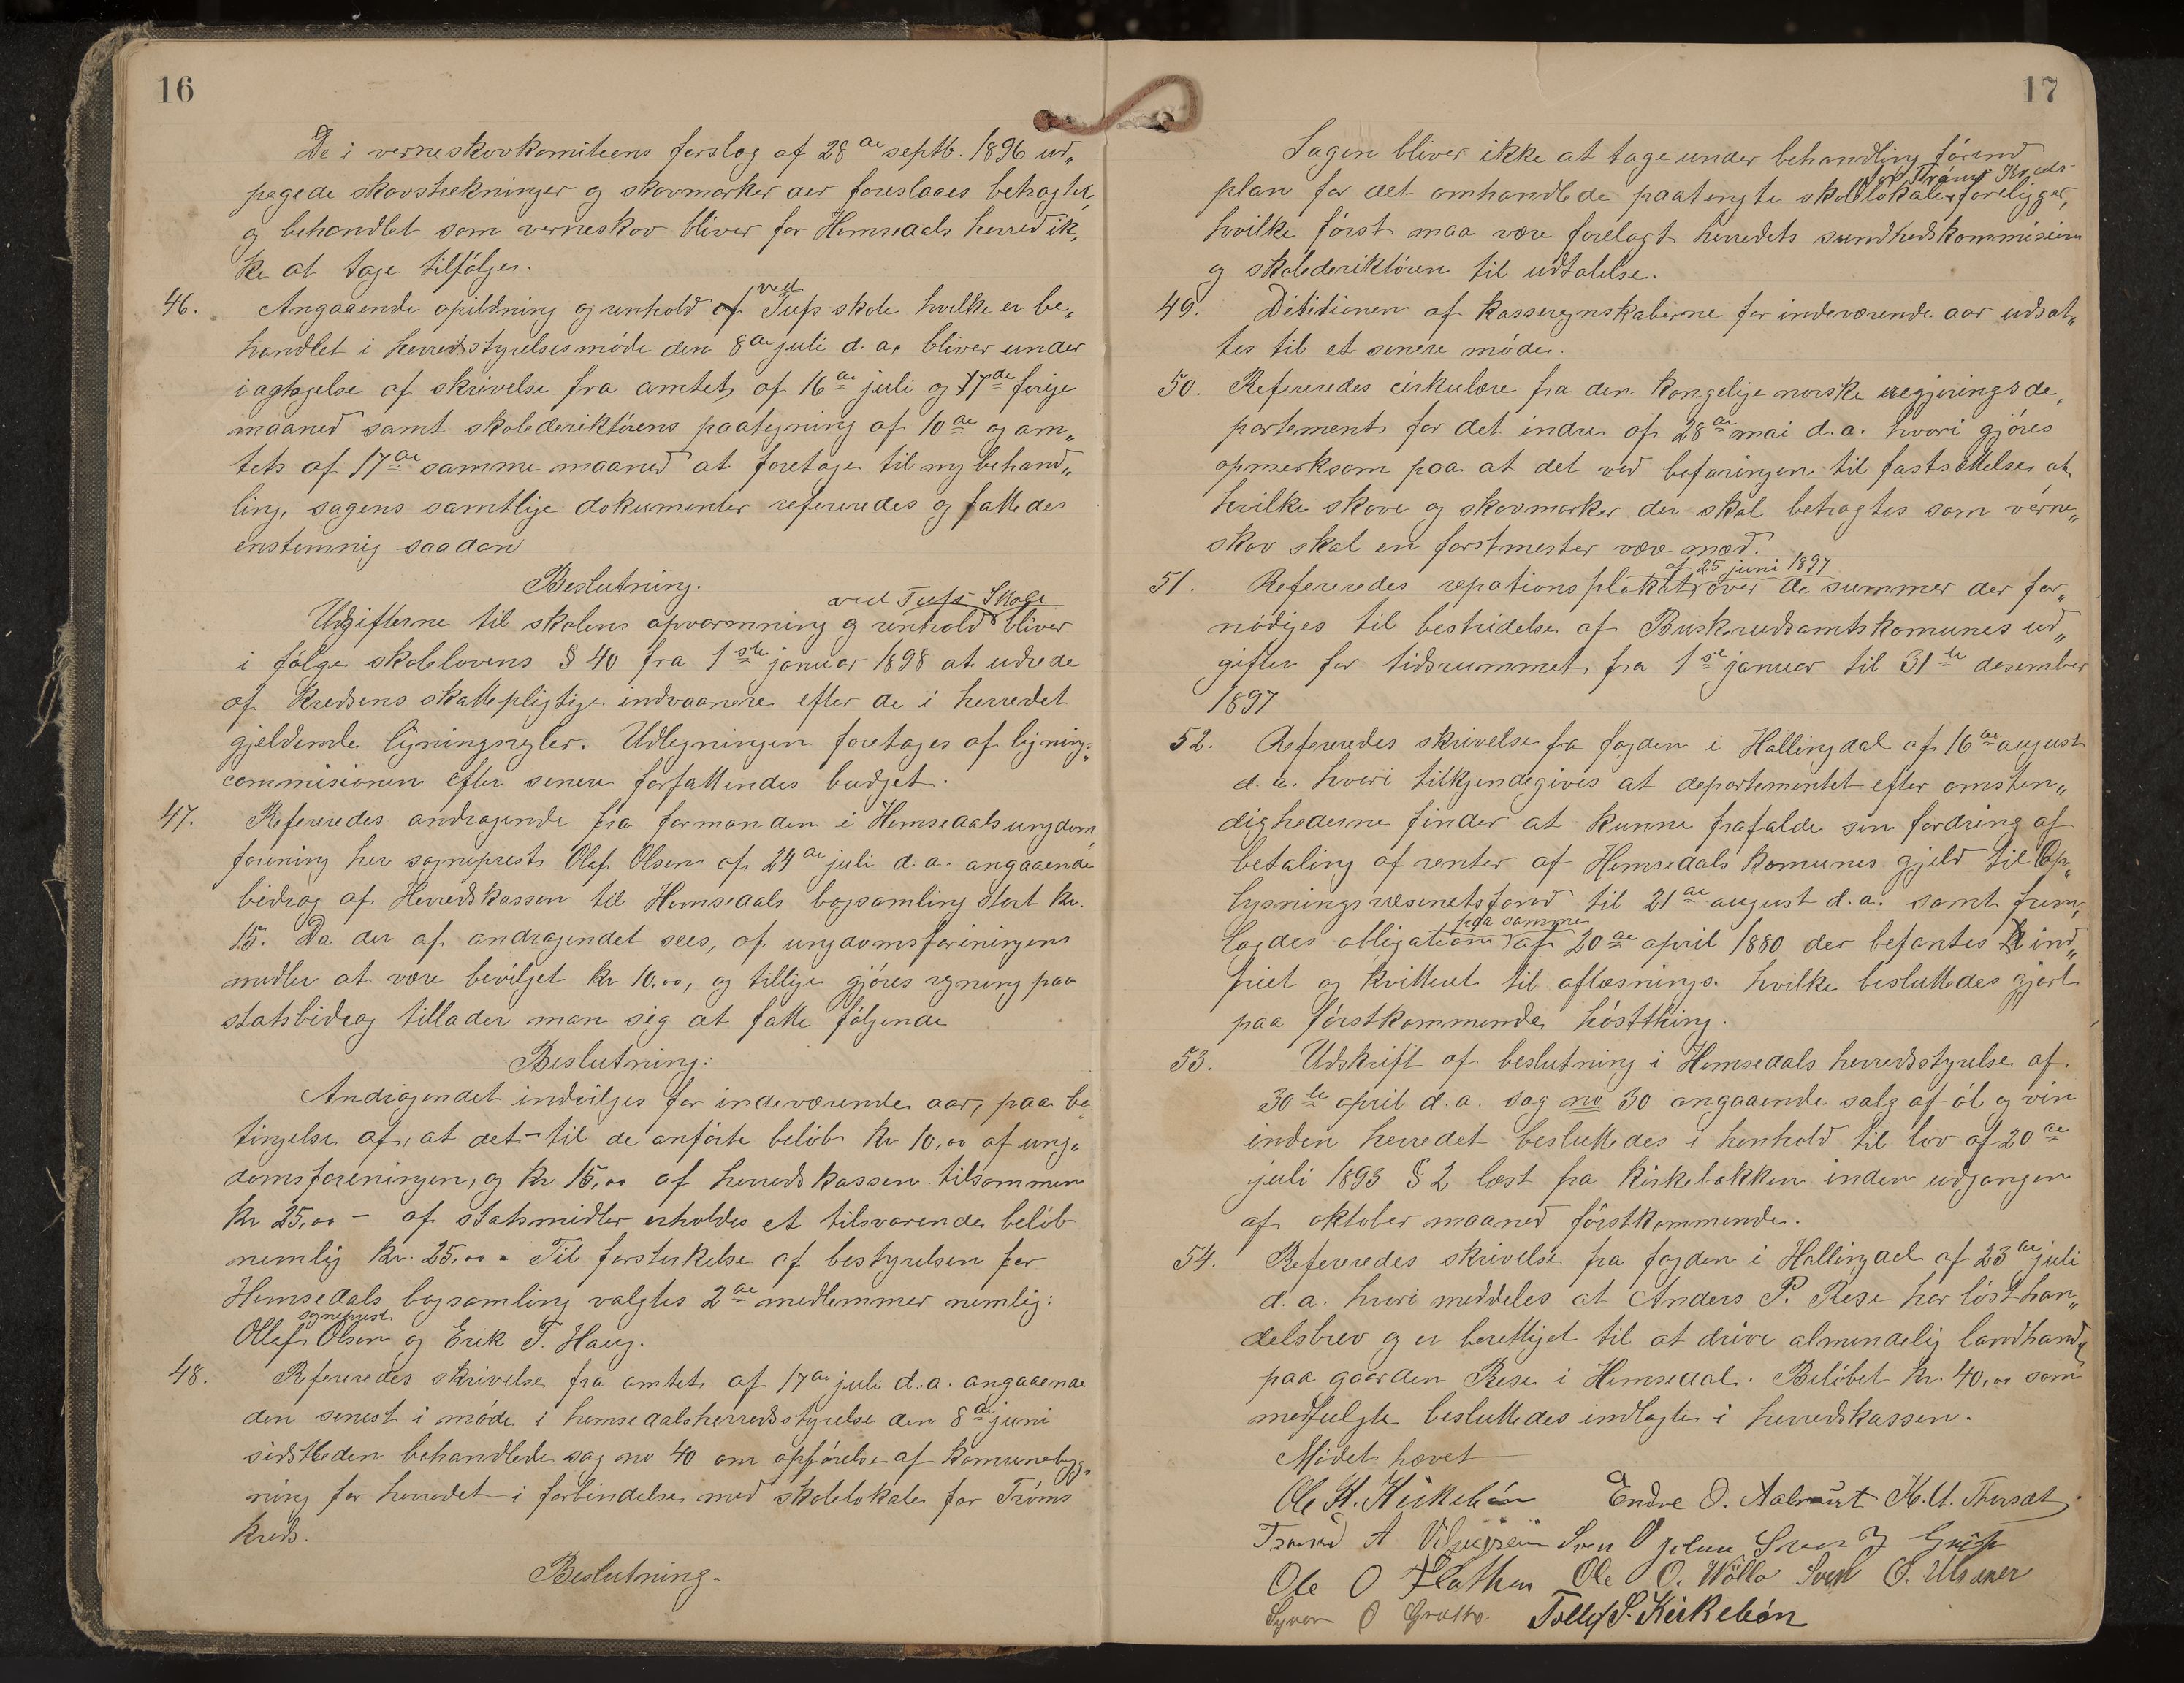 16
De i verneskovkomiteens forslag af 28de septb. 1896 ud„
pegede skovstrekninger og skovmarker der foreslaaes betragtet
og behandlet som verneskov bliver for Hemsedals herred ik„
ke at tage tilfølge.
46. Angaaende opildning og renhold af ved Tufs skole hvilke er be„
handlet i herredsstyrelsesmøde den 8de juli d. a. bliver under
iagtagelse af skrivelse fra amtet af 16de juli og 17de forige
maaned samt skoledirektørens paategning af 10de og am„
tets af 17de samme maaned at foretage til ny behand„
ling, sagens samtlige dokumenter refereredes og fattedes
enstemmig saadan
Beslutning.
ved Tufs Skole
Udgifterne til skolens opvarmning og renhold bliver
i følge skolelovens § 40 fra 1ste januar 1898 at udrede
af kredsens skattepligtige indvaanere efter de i herredet
gjeldende ligningsregler. Udlegningen foretages af ligning„
commisionen efter senere forfattendes budget.
47. Refereredes andragende fra formanden i Hemsedals ungdom„
forening her sogneprest Olaf Olsen af 24de juli d. a. angaaende
bidrag af Herredskassen til Hemsedals bogsamling stort kr.
15. Da der af andragendet sees, af ungdomsforeningens
midler at være bevilget kr 10,00, og tillige gjøres regning paa
statsbidrag tillader man sig at fatte følgende
Beslutning:
Andragendet indvilges for indeværende aar, paa be„
tingelse af, at det – til de anførte beløb kr 10,00 af ung„
domsforeningen, og kr 15,00 af herredskassen tilsammen
kr 25,00 – af statsmidler erholdes et tilsvarende beløb
nemlig kr. 25,00. Til forsterkelse af bestyrelsen for
Hemsedals bogsamling valgtes 2de medlemmer nemlig:
sogneprest
Ollaf Olsen og Erik T. Haug.
48. Refereredes skrivelse fra amtet af 17de juli d. a. angaaende
den senest i møde i hemsedalsherredsstyrelse den 8de juni
sidstleden behandlede sag no 40 om opførelse af komunebyg„
ning for herredet i forbindelse med skolelokale for Trøms
kreds.
Beslutning.
17
Sagen bliver ikke at tage under behandling førend
for Trøms Kreds
plan for det omhandlede paatengte skolelokale foreligger,
hvilke først maa være forelagt herredets sundhedskommision
og skolederiktøren til udtalelse.
49. Desitionen af kasseregnskaberne for indeværende aar udsat„
tes til et senere møde.
50. Refereredes cirkulære fra den kongelige norske regjeringsde„
partement for det indre af 28de mai d. a. hvori gjøres
opmerksom paa at det ved befaringen til fastsettelse at
hvilke skove og skovmarker der skal betragtes som verne„
skov skal en forstmester være med.
af 25 juni 1897
51. Refereredes repationsplakat over de summer der for„
nødiges til bestridelse af Buskerudsamtskomunes ud„
gifter for tidsrummet fra 1ste januar til 31te desember
1897
52. Refereredes skrivelse fra fogden i Hallingdal af 16de august
d. a. hvori tilkjendegives at departementet efter omsten„
dighederne finder at kunne frafalde sin fordring af
betaling af renter af Hemsedals komunes gjeld til Op„
lysningsvæsenetsfond til 21de august d. a. samt frem„
paa samme
lagdes obligation af 20de april 1880 der befantes ind„
friet og kvitteret til aflæsnings. hvilke besluttedes gjort
paa førstkommende høstthing.
53. Udskrift af beslutning i Hemsedals herredsstyrelse af
30te april d. a. sag no 30 angaaende salg af øl og vin
inden herredet besluttedes i henhold til lov af 20de
juli 1893 § 2 læst fra kirkebakken inden udgangen
af oktober maaned førstkommende.
54. Refereredes skrivelse fra fogden i Hallingdal af 23de juli
d. a. hvori meddeles at Anders P. Rese har løst han„
delsbrev og er berettiget til at drive almindelig landhandel
paa gaarden Rese i Hemsedal. Beløbet kr. 40,00 som
medfulgte besluttedes indlagte i herredskassen.
Mødet hævet
Ole H. Kirkebøn Endre O. K. U. Thorset
A Sven O
Ole O Flathen Ole O. Wøllo Sven O. Ulsaker
Syver O Grøthe Tollef S. Kirkebøn